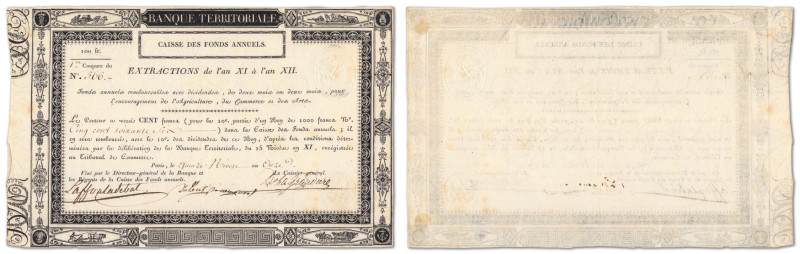 BANQUE TERRITORIALE
CAISSE DES FONDS ANNUELS.
100 fr.
Coupure du
N°. 566
EXTRACTIONS de l'an XI à l'an XII.
Fonds annuels remboursables avec dividendes, de deux mois en deux mois, pour
l'encouragement de l'Agriculture, du Commerce et des Arts.
Les Porteur a versé CENT francs (pour les 10e. partie d'un Bon de 1000 francs N°.
Cinq cent soixante Six) dans la Caisse des Fonds annuels; il
en sera remboursé, avec le 10e. des dividendes de ce Bon, d'après les conditions déterminées
par la délibération de la Banque Territoriale, du 25 en XI, enregistrée
au Tribunal de Commerce.
Paris, le an
Visé par le Directeur-général de la Banque et Le Caissier-général.
les Régents de la Caisse des Fonds annuels.
Laffonladebat
CAISSE DES FONDS ANNUELS